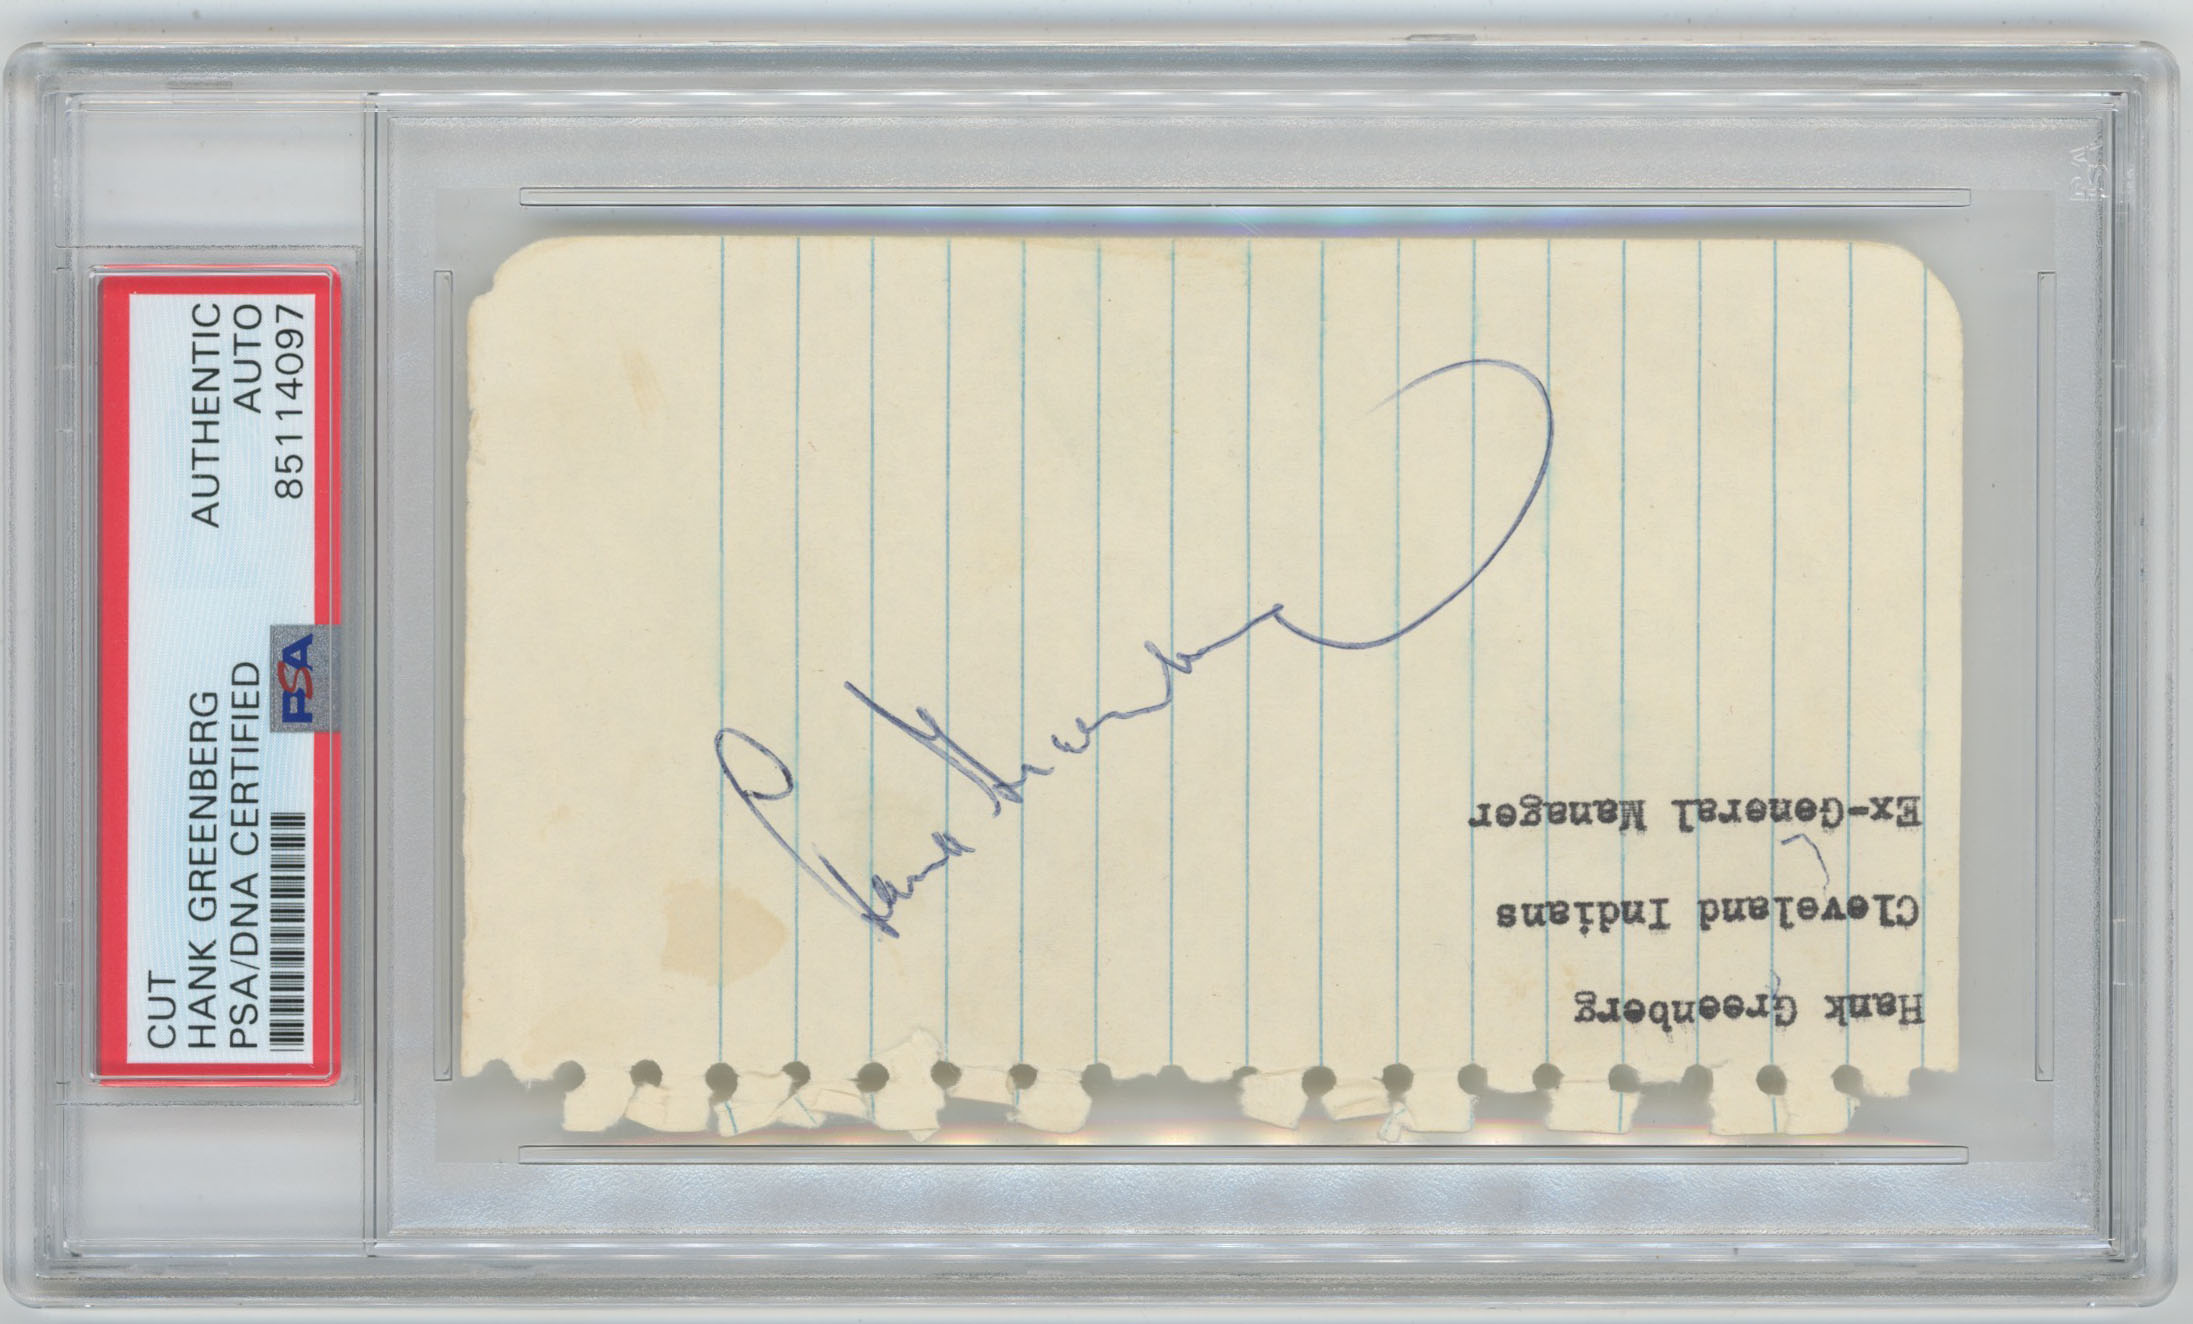 CUT
HANK GREENBERG
PSA/DNA CERTIFIED
AUTHENTIC
AUTO
85114097
PSA
Hank Greenberg
Hank Greenberg
Cleveland Indians
Ex-General Manager
PSA